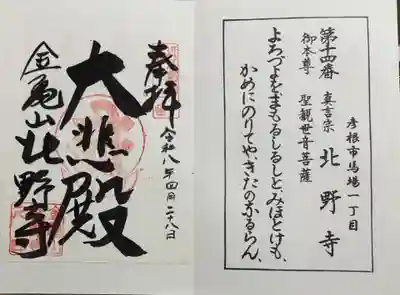 奉拝
令和八年四月二十八日
大悲殿
金亀山北野寺
彦根市馬場一丁目
第十四番 真言宗 北野寺
御本尊 聖観世音菩薩
よろづよを、まもるしるしと、みほとけも、
かめにのりてや、きたのなるらん、